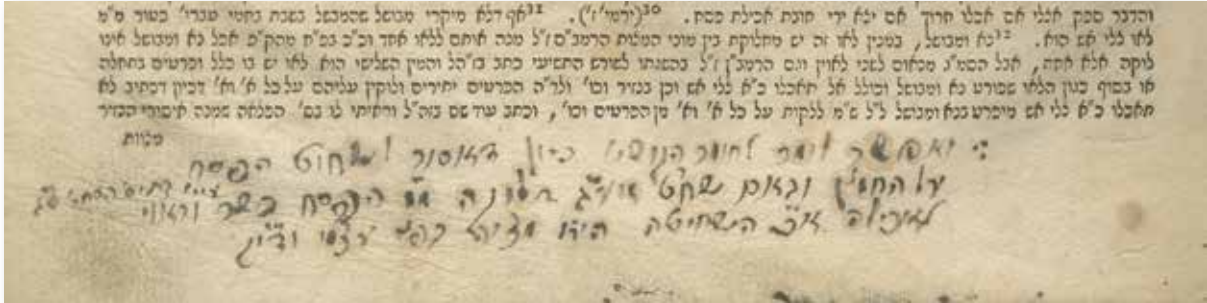 והדבר ספק אללי אם אכלו חרוך אם יצא ידי חובת אכילת פסח. 30(ירמי' ז'). 31אף דלא מיקרי מבושל שהמבשל בשבת בחמי טברי' פטור מ"מ
לאו צלי אש הוא. 32נא ומבושל, במנין לאו זה יש מחלוקת בין מוני המצות הרמב"ם ז"ל מנה אותם ללאו אחד וכ"כ בפ"ח מהק"פ אכל נא ומבושל אינו
לוקה אלא אחת, אבל הסמ"ג מנאום לשני לאוין וגם הרמב"ן ז"ל בהשגתו לשורש התשיעי כתב בז"הל והמין השלישי הוא לאו יש בו כלל ופרטים בתחלה
או בסוף כגון הלאו שפורט נא ומבושל וכולל אל תאכלו כ"א צלי אש וכן בנזיר וכו' ולד"ה הפרטים יתירים ולוקין עליהם על כל א' וא' דכיון דכתיב לא
תאכלו כ"א צלי אש מיפרט בנא ומבושל ל"ל ש"מ ללקות על כל א' וא' מן הפרטים וכו', וכתב עוד שם בזה"ל וראיתי לו בס' הפלאה שמנה איסורי הנזיר
מצות
ואפשר לומר לחומר הנושא כיון דאסור לשחוט הפסח
על החמץ ובאם שחט הפסח כשר וראוי
לאכילה א"כ השחיטה